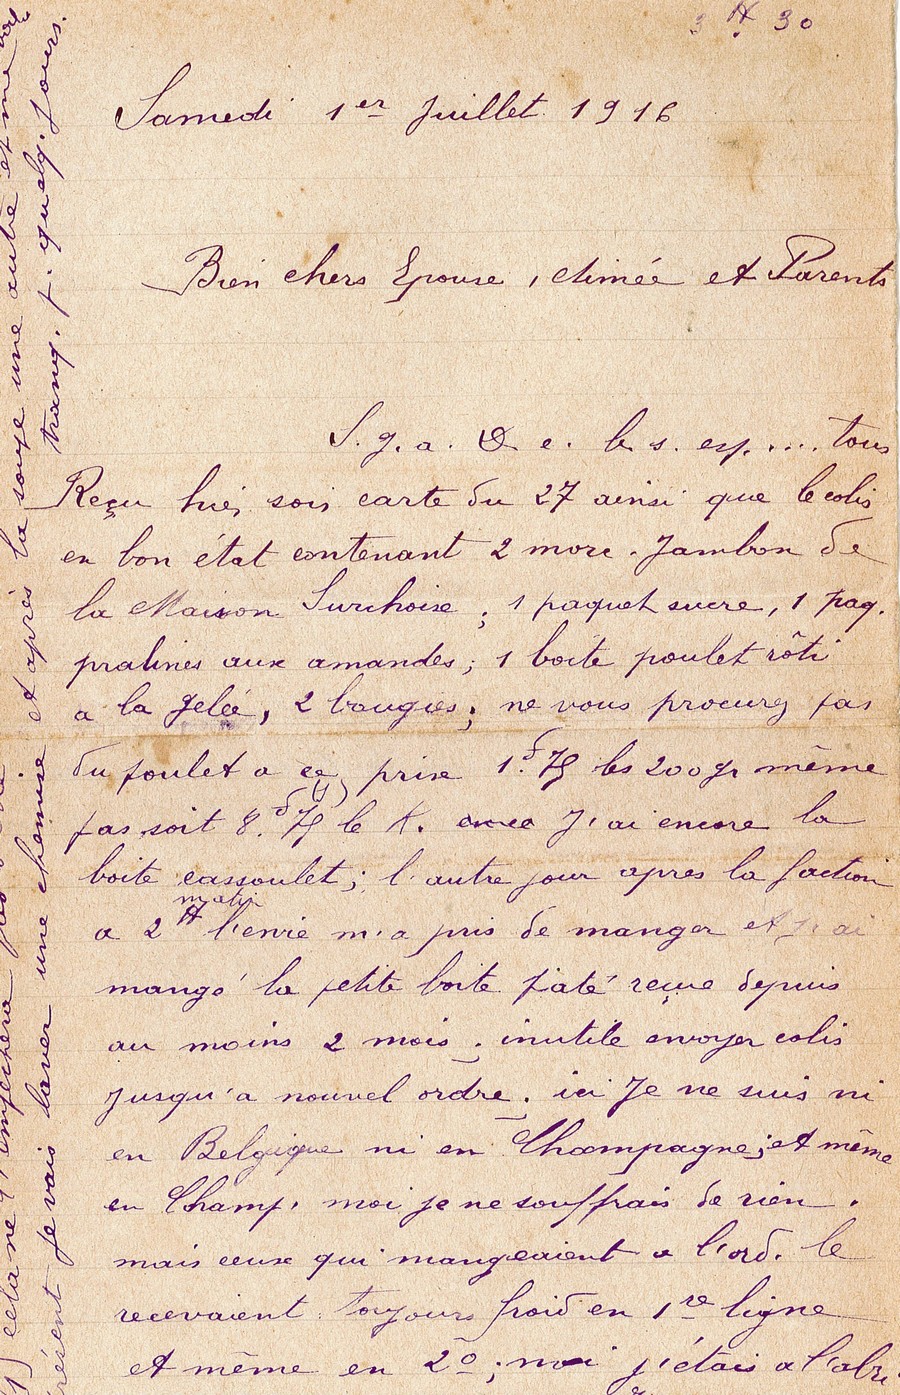 3 H 30
Samedi 1er Juillet 1916
Bien chers Epouse, Aimée et Parents
S. g. a. D e. b. s. esp.... tous
Reçu hier soir carte du 27 ainsi que le colis
en bon état contenant 2 morc. Jambon de
la Maison Surchoise ; 1 paquet sucre, 1 paq.
pralines aux amandes ; 1 boite poulet rôti
a la gelée, 2 bougies ; ne vous procurez pas
du poulet a ce prix 1.f 75 les 200 gr même
pas soit 8.f 75 le K. J'ai encore la
boite cassoulet ; l'autre jour apres la faction
a 2 H matin l'envie m'a pris de manger et j'ai
mangé la petite boite paté reçue depuis
au moins 2 mois ; inutile envoyer colis
jusqu'a nouvel ordre. ici Je ne suis ni
en Belgique ni en Champagne ; et même
en Champ. moi je ne souffrais de rien .
mais ceux qui mangeaient a l'ord. le
recevaient toujours froid en 1re ligne
et même en 2o ; moi j'étais a l'abri
cela ne m'empêchera pas
présent je vais laver une chemise et après la soupe une autre et me voilà
tranq. p. quelq. jours.